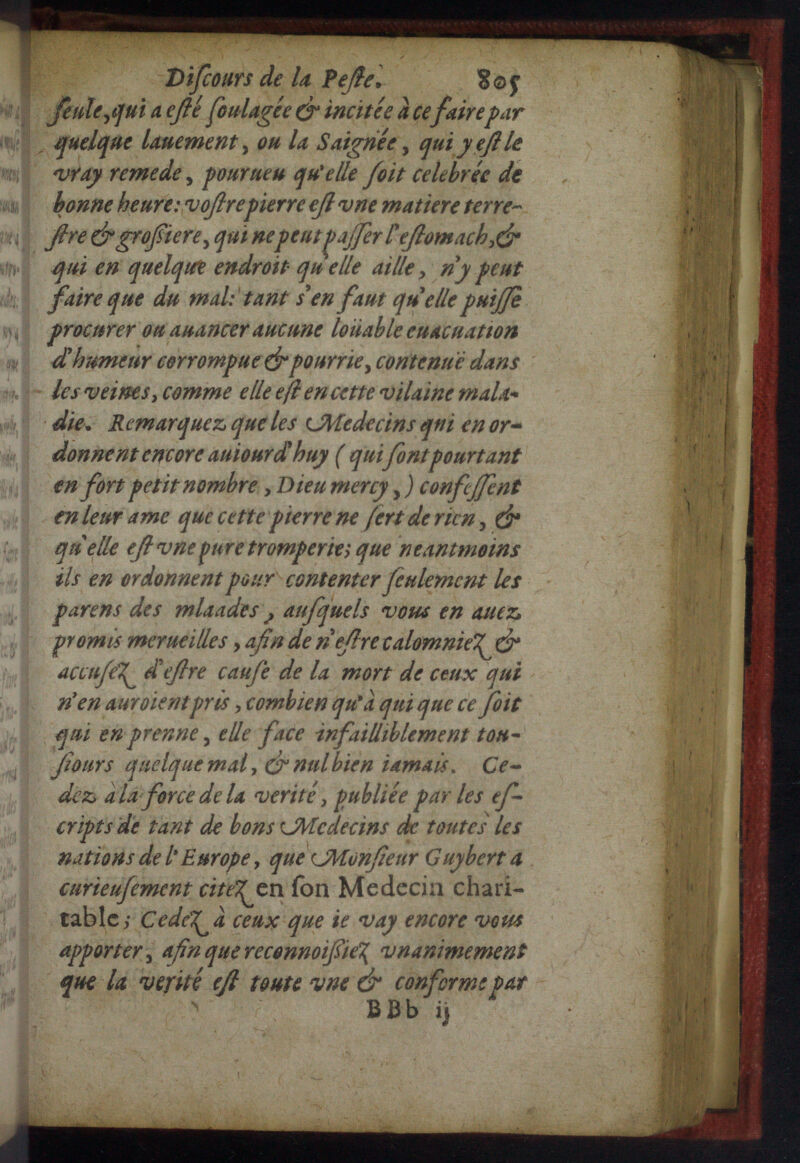 Diſcours de la Peſte. 805
ſeule, qui a eſté ſoulagée & incitée à ce faire par
quelque lauement, ou la Saignée, qui y eſt le
vray remede, pourueu qu'elle ſoit celebrée de
bonne heure: voſtre pierre eſt vne matiere terre-
ſtre & groſſiere, qui ne peut paſſer l'eſtomach, &
qui en quelque endroit qu'elle aille, n'y peut
faire que du mal: tant s'en faut qu'elle puiſſe
procurer ou auancer aucune loüable euacuation
d'humeur corrompue & pourrie, contenuë dans
les veines, comme elle eſt en cette vilaine mala-
die. Remarquez que les Medecins qui en or-
donnent encore auiourd'huy ( qui ſont pourtant
en fort petit nombre, Dieu mercy, ) confeſſent
en leur ame que cette pierre ne ſert de rien, &
qu'elle eſt vne pure tromperie; que neantmoins
ils en ordonnent pour contenter ſeulement les
parens des mlaades, auſquels vous en auez
promis merueilles, afin de n'eſtre calomniez &
accuſez d'eſtre cauſe de la mort de ceux qui
n'en auroient pris, combien qu'à qui que ce ſoit
qui en prenne, elle face infailliblement tou-
ſiours quelque mal, & nul bien iamais. Ce-
dez à la force de la verité, publiée par les eſ-
cripts de tant de bons Medecins de toutes les
nations de l'Europe, que Monſieur Guybert a
curieuſement citez en ſon Medecin chari-
table; Cedez à ceux que ie vay encore vous
apporter, afin que reconnoiſſiez vnanimement
que la verité eſt toute vne & conforme par
BBb ij